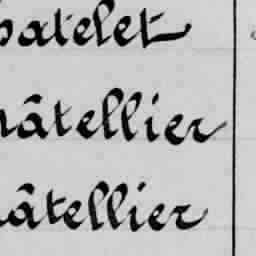 hatelet
hâtellier
hâtellier